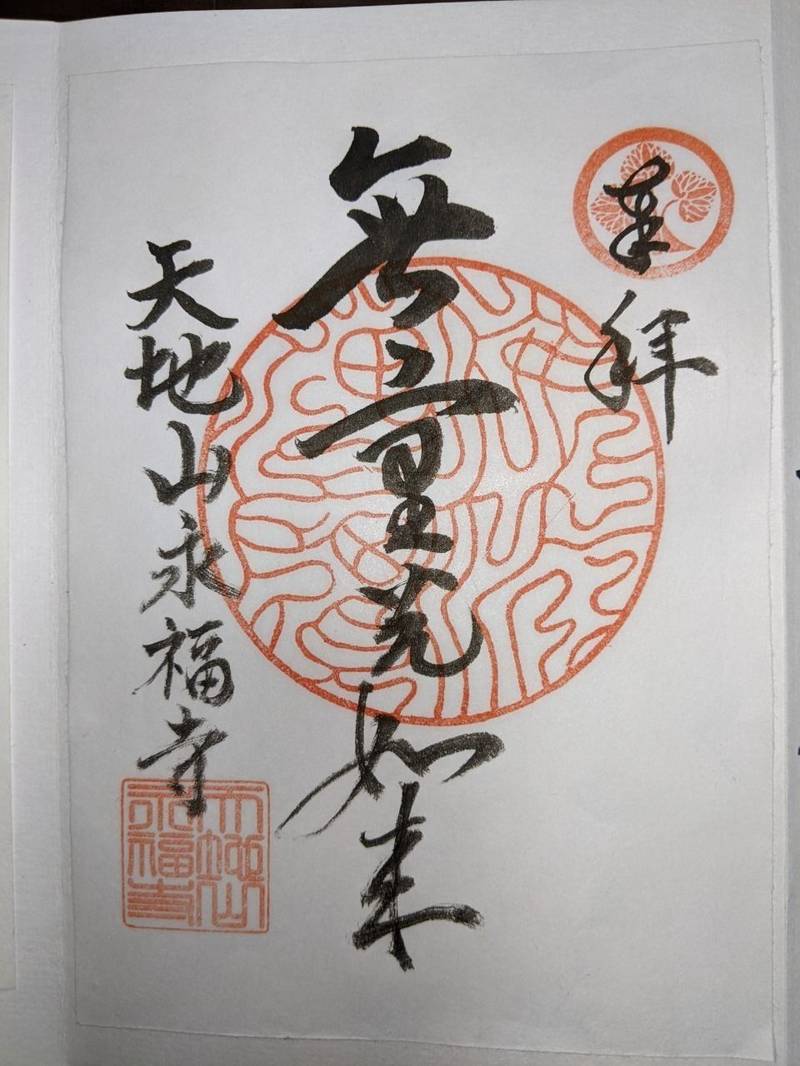 奉拝
無量光如来
天地山永福寺
天地山
永福寺